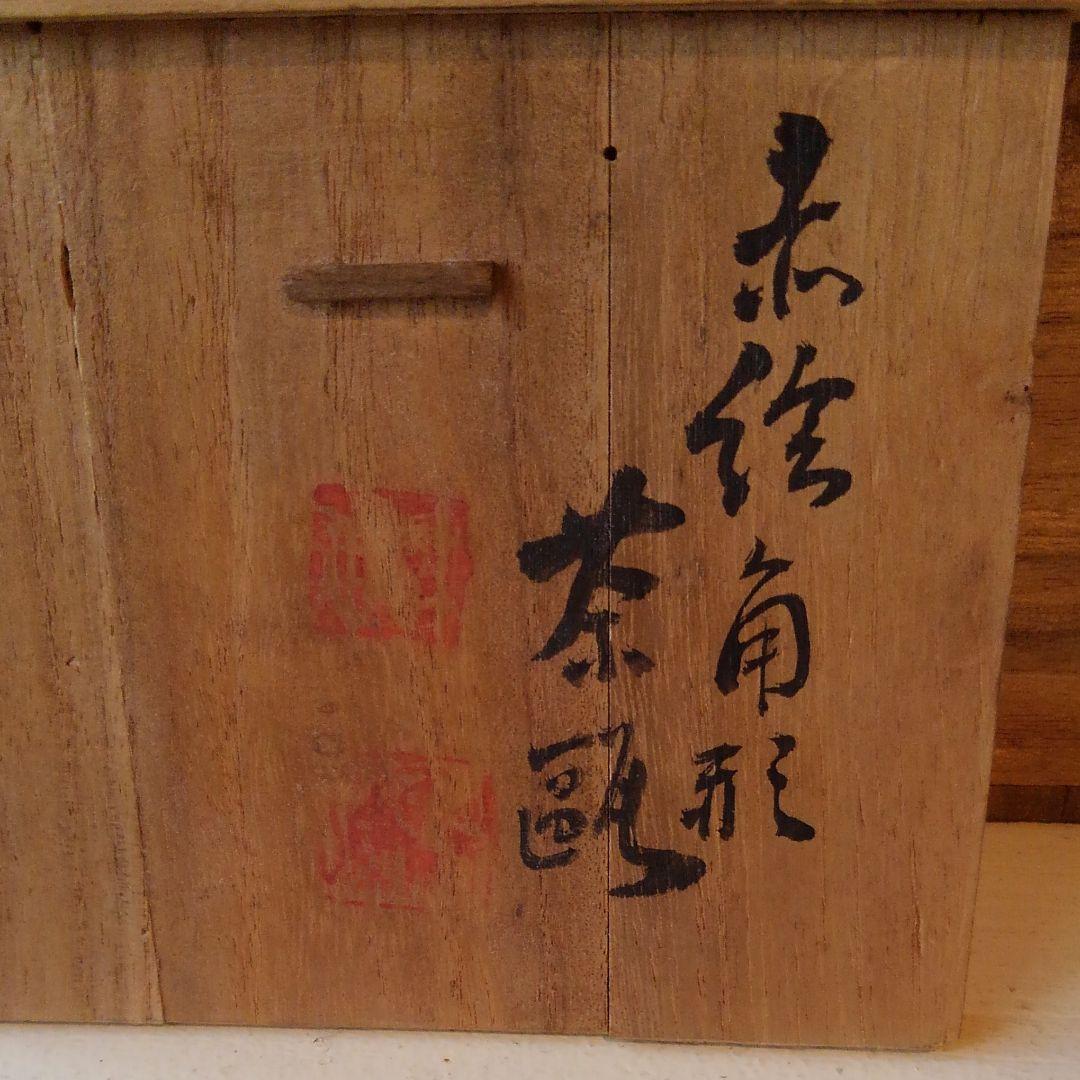 赤絵角形
茶甌